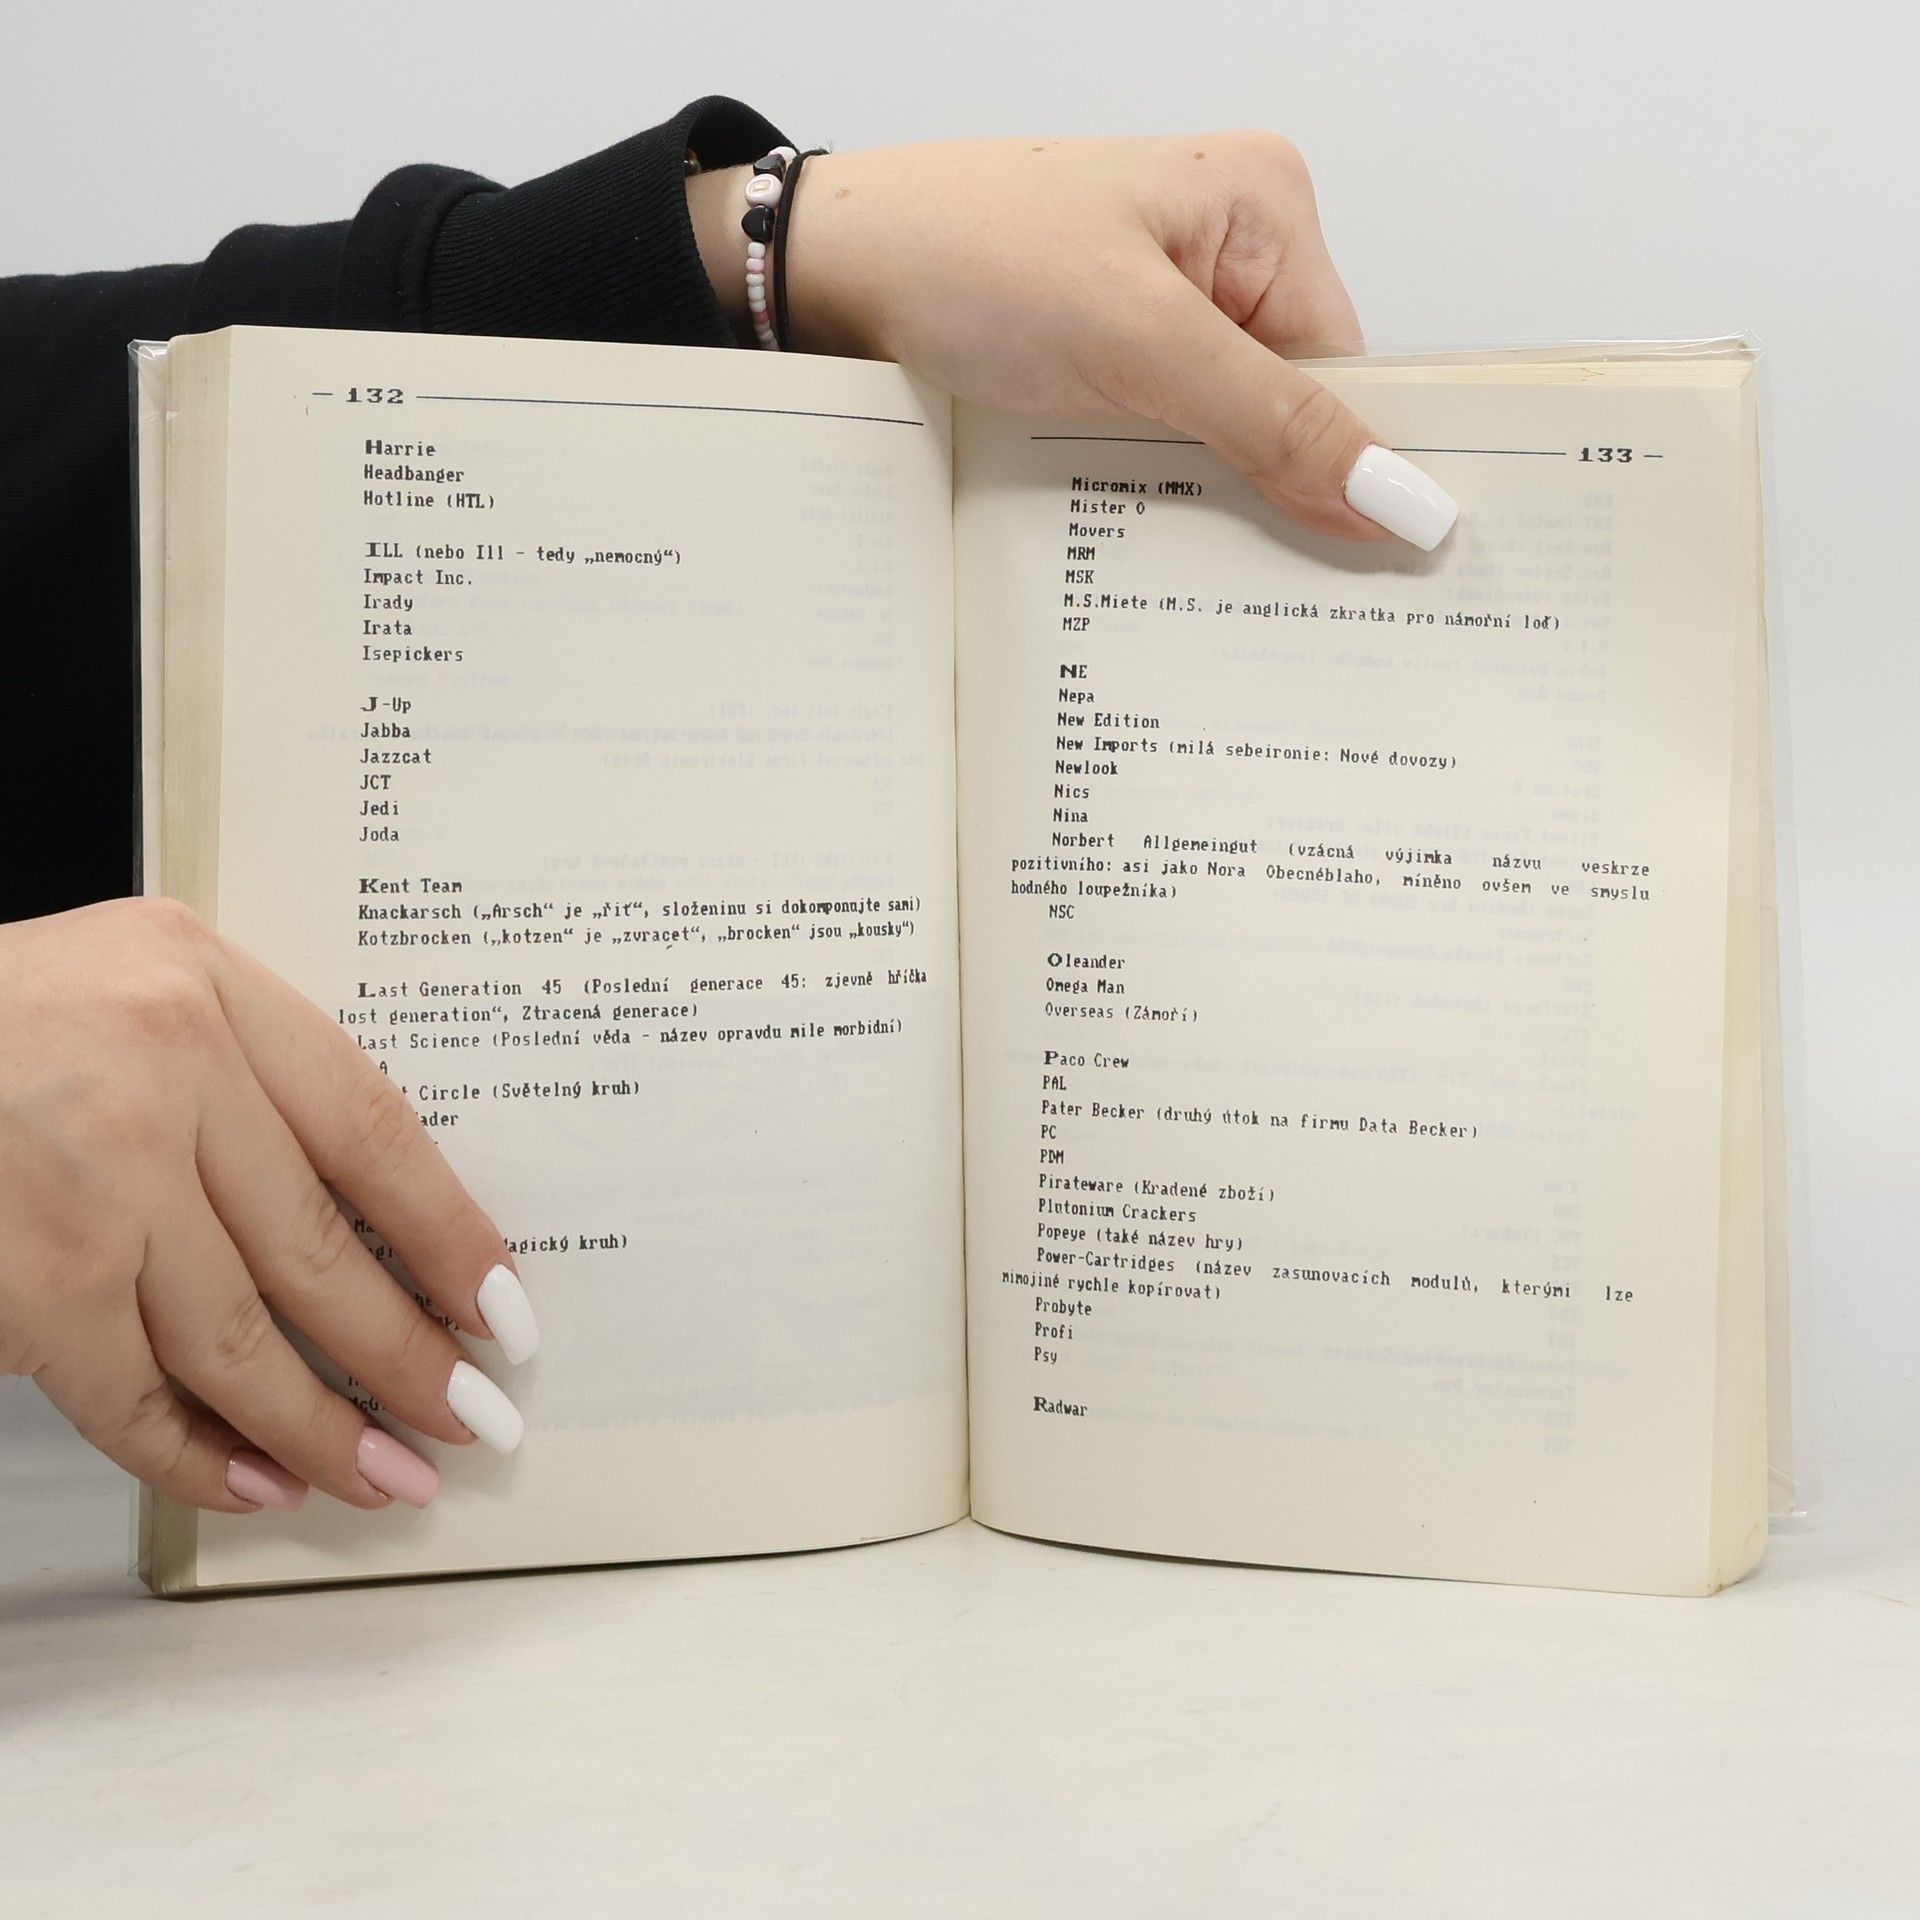 — 132
Harrie
Headbanger
Hotline (HTL)
ILL (nebo Ill - tedy „nemocný“)
Impact Inc.
Irady
Irata
Isepickers
J-Up
Jabba
Jazzcat
JCT
Jedi
Joda
Kent Team
Knackarsch („Arsch“ je „řiť“, složeninu si dokomponujte sami)
Kotzbrocken („kotzen“ je „zvracet“, „brocken“ jsou „kousky“)
Last Generation 45 (Poslední generace 45: zjevně hříčka
lost generation“, Ztracená generace)
Last Science (Poslední věda - název opravdu mile morbidní)
Circle (Světelný kruh)
kruh)
133 —
Micromix (MMX)
Mister O
Movers
MRM
MSK
M.S.Miete (M.S. je anglická zkratka pro námořní loď)
MZP
NE
Nepa
New Edition
New Imports (milá sebeironie: Nové dovozy)
Newlook
Nics
Nina
Norbert Allgemeingut (vzácná výjimka názvu veskrze
pozitivního: asi jako Nora Obecnéblaho, míněno ovšem ve smyslu
hodného loupežníka)
NSC
Oleander
Omega Man
Overseas (Zámoří)
Paco Crew
PAL
Pater Becker (druhý útok na firmu Data Becker)
PC
PDM
Pirateware (Kradené zboží)
Plutonium Crackers
Popeye (také název hry)
Power-Cartridges (název zasunovacích modulů, kterými lze
mimojiné rychle kopírovat)
Probyte
Profi
Psy
Radwar